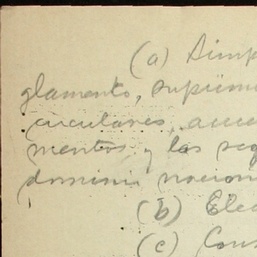 (a) Simp
glamento, suprimi
circulares, acue
mentos, y las reg
dominio nacion
(b) Elec
(c) Cons